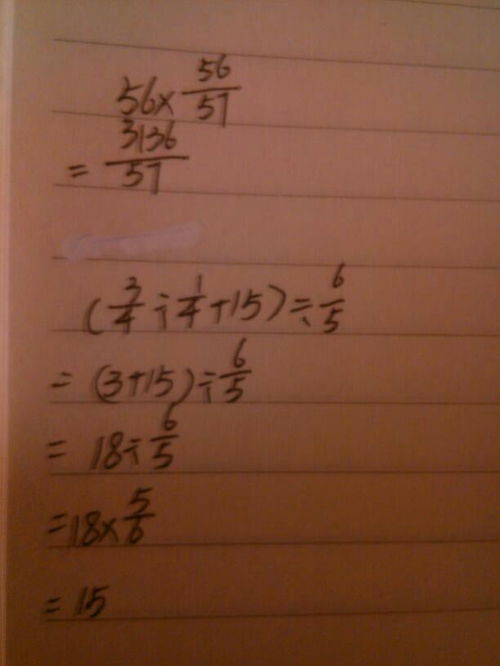 56×56/57
=3136/57
(3/4÷1/4+15)÷6/5
=(3+15)÷6/5
=18÷6/5
=18×5/6
=15